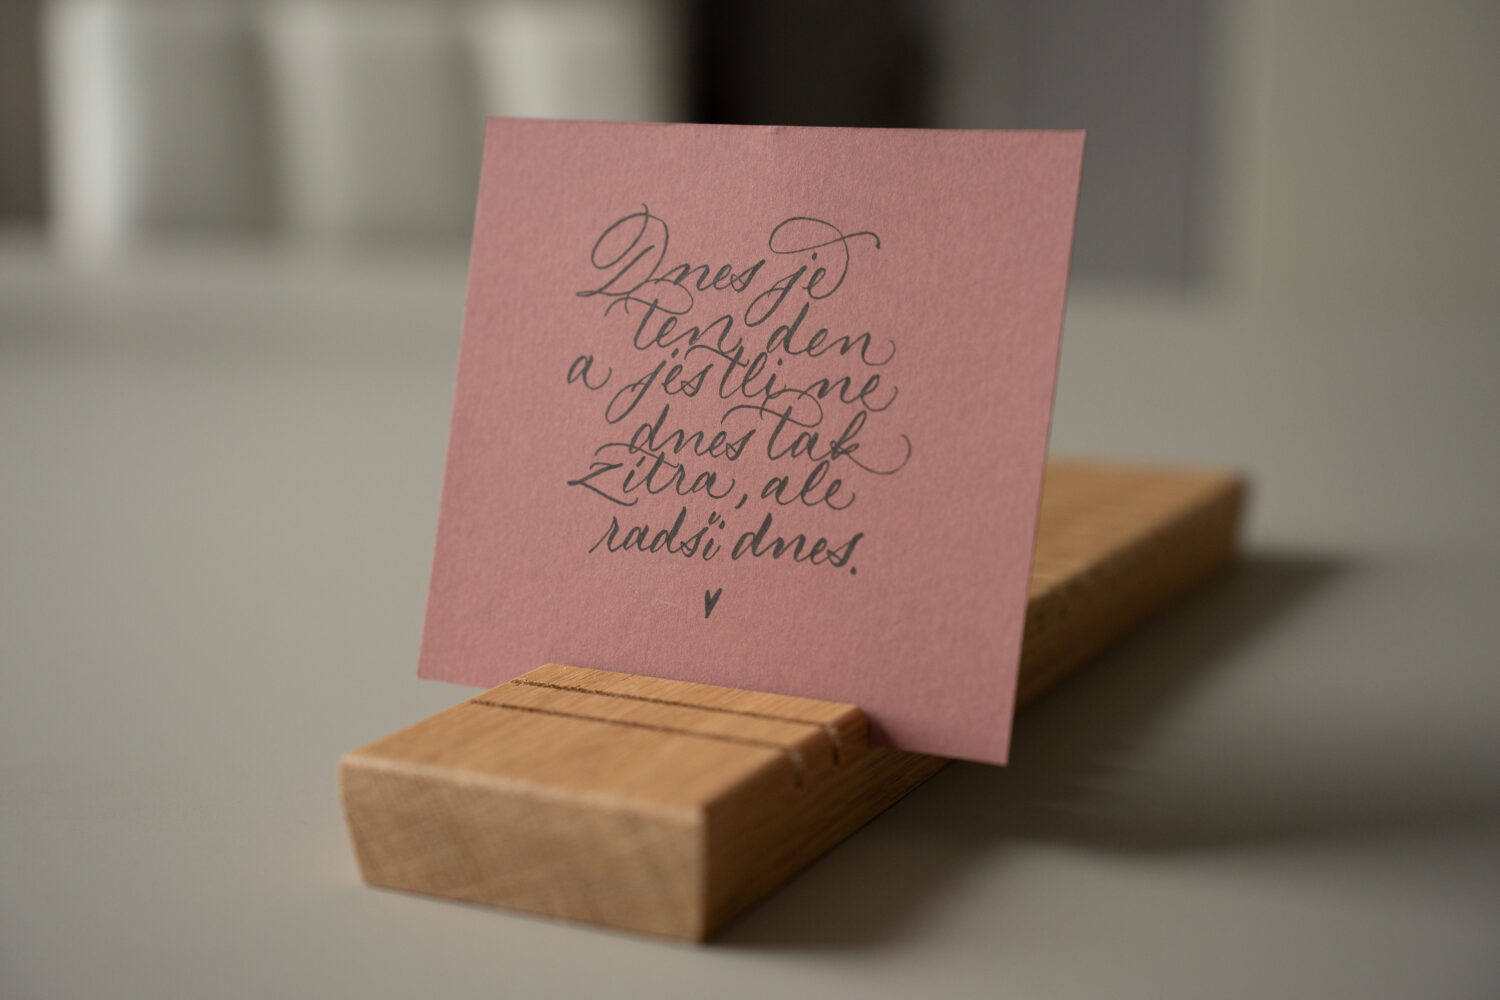 Dnes je
ten den
a jestli ne
dnes tak
zítra, ale
radši dnes.